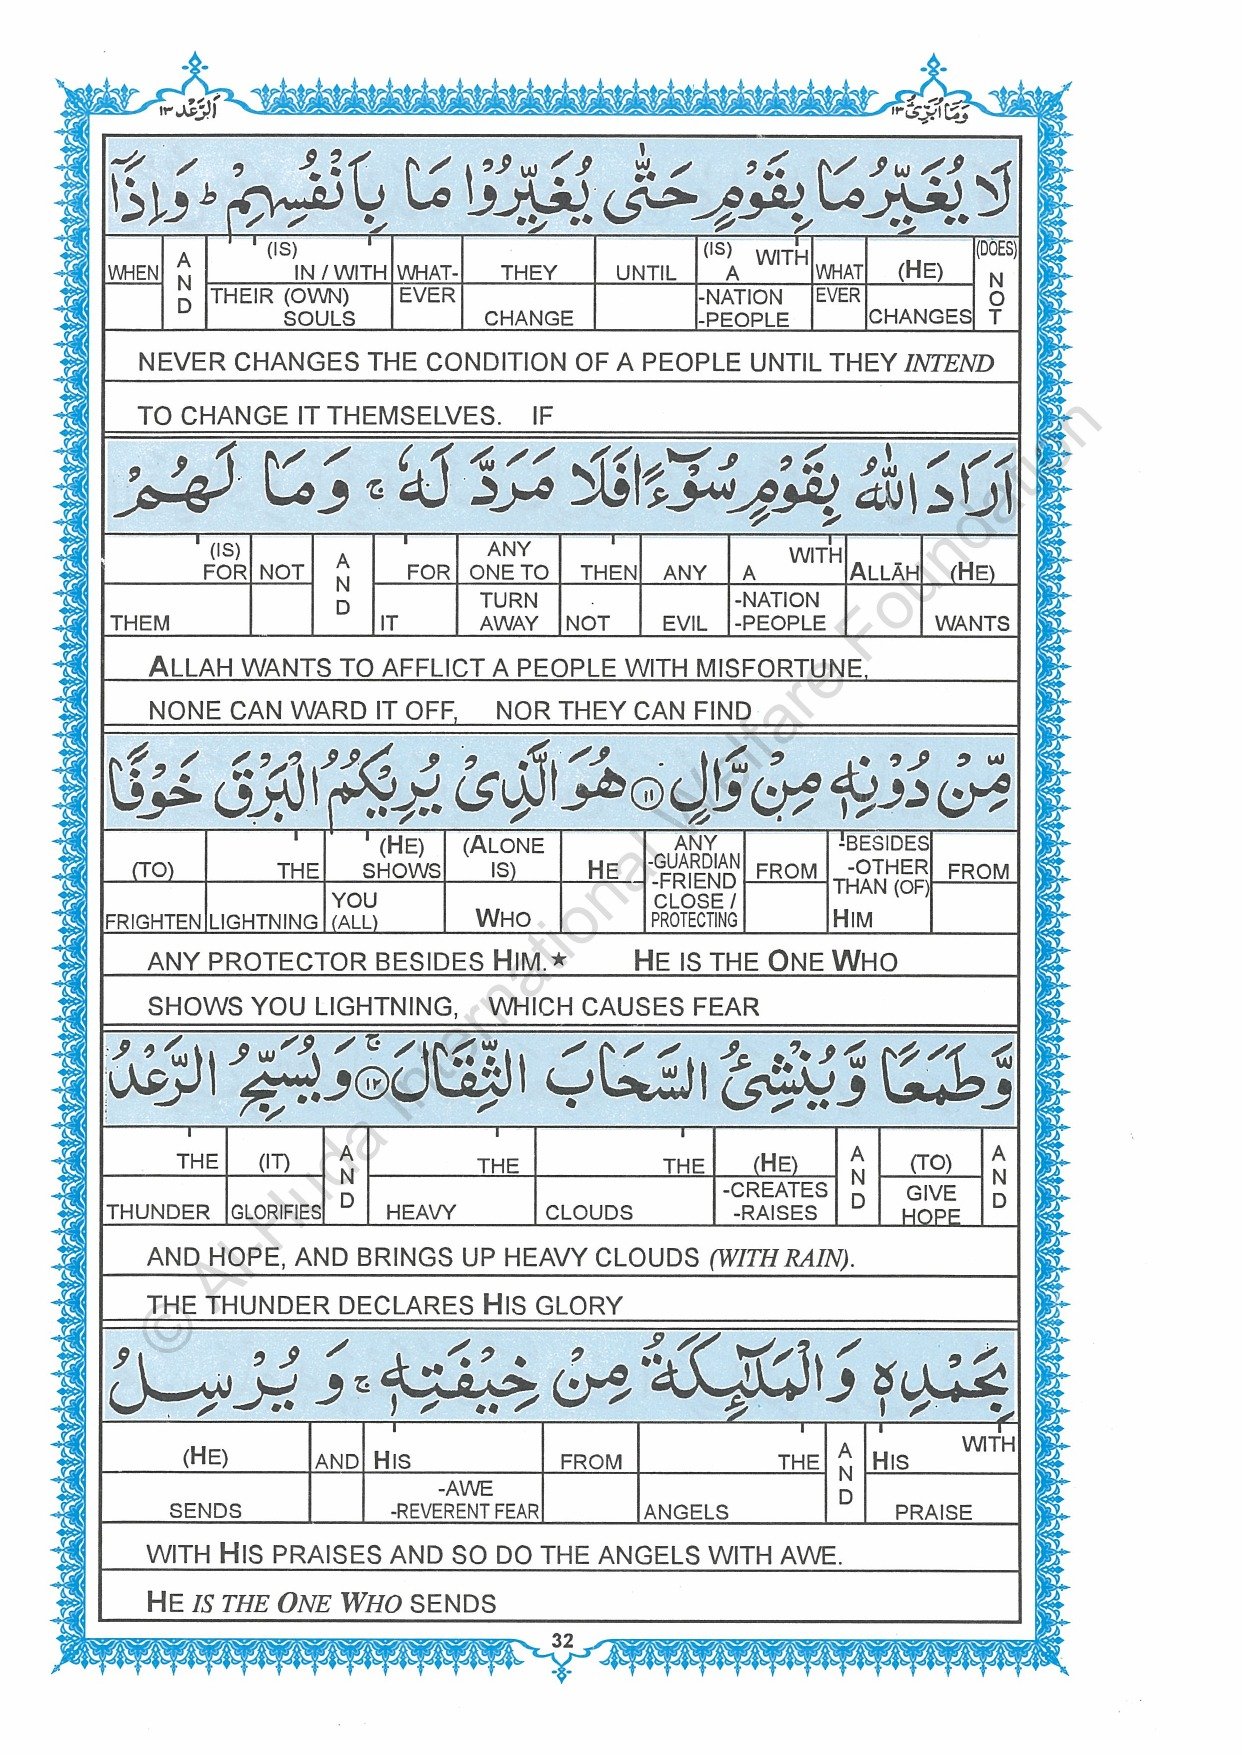 اَلرَّعْد ١٣
وَمَا اُبَرِّئُ ١٣
لَا يُغَيِّرُ مَا بِقَوْمٍ حَتّٰى يُغَيِّرُوْا مَا بِاَنْفُسِهِمْ ؕ وَاِذَاۤ
(DOES) NOT | (HE) CHANGES | WHAT EVER | (IS) WITH A -NATION -PEOPLE | UNTIL | THEY CHANGE | WHAT- EVER | (IS) IN / WITH THEIR (OWN) SOULS | AND | WHEN
NEVER CHANGES THE CONDITION OF A PEOPLE UNTIL THEY INTEND
TO CHANGE IT THEMSELVES. IF
اَرَادَ اللّٰهُ بِقَوْمٍ سُوْٓءًا فَلَا مَرَدَّ لَهٗ ۚ وَمَا لَهُمْ
(HE) WANTS | ALLĀH | WITH A -NATION -PEOPLE | ANY EVIL | THEN NOT | ANY ONE TO TURN AWAY | FOR IT | AND | NOT | (IS) FOR THEM
ALLAH WANTS TO AFFLICT A PEOPLE WITH MISFORTUNE,
NONE CAN WARD IT OFF, NOR THEY CAN FIND
مِّنْ دُوْنِهٖ مِنْ وَّالٍ ۝١١ هُوَ الَّذِىْ يُرِيْكُمُ الْبَرْقَ خَوْفًا
FROM | -BESIDES -OTHER THAN (OF) HIM | FROM | ANY -GUARDIAN -FRIEND CLOSE / PROTECTING | HE | (ALONE IS) WHO | (HE) SHOWS YOU (ALL) | THE LIGHTNING | (TO) FRIGHTEN
ANY PROTECTOR BESIDES HIM.★ HE IS THE ONE WHO
SHOWS YOU LIGHTNING, WHICH CAUSES FEAR
وَّطَمَعًا وَّيُنْشِئُ السَّحَابَ الثِّقَالَ ۚ۝١٢ وَيُسَبِّحُ الرَّعْدُ
AND | (TO) GIVE HOPE | AND | (HE) -CREATES -RAISES | THE CLOUDS | THE HEAVY | AND | (IT) GLORIFIES | THE THUNDER
AND HOPE, AND BRINGS UP HEAVY CLOUDS (WITH RAIN).
THE THUNDER DECLARES HIS GLORY
بِحَمْدِهٖ وَالْمَلٰٓئِكَةُ مِنْ خِيْفَتِهٖ ۚ وَيُرْسِلُ
WITH HIS PRAISE | AND | THE ANGELS | FROM | HIS -AWE -REVERENT FEAR | AND | (HE) SENDS
WITH HIS PRAISES AND SO DO THE ANGELS WITH AWE.
HE IS THE ONE WHO SENDS
32
© Al-Huda International Welfare Foundation